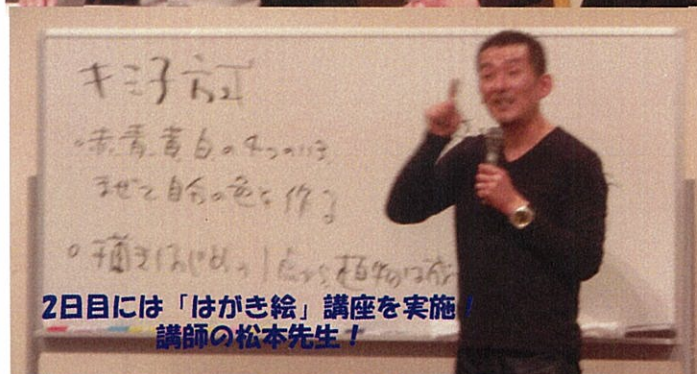 キミ子方式
・赤、青、黄、白の4つのいろ
まぜて自分の色を作る
○描きはじめの1点から植物は
2日目には「はがき絵」講座を実施!
講師の松本先生!